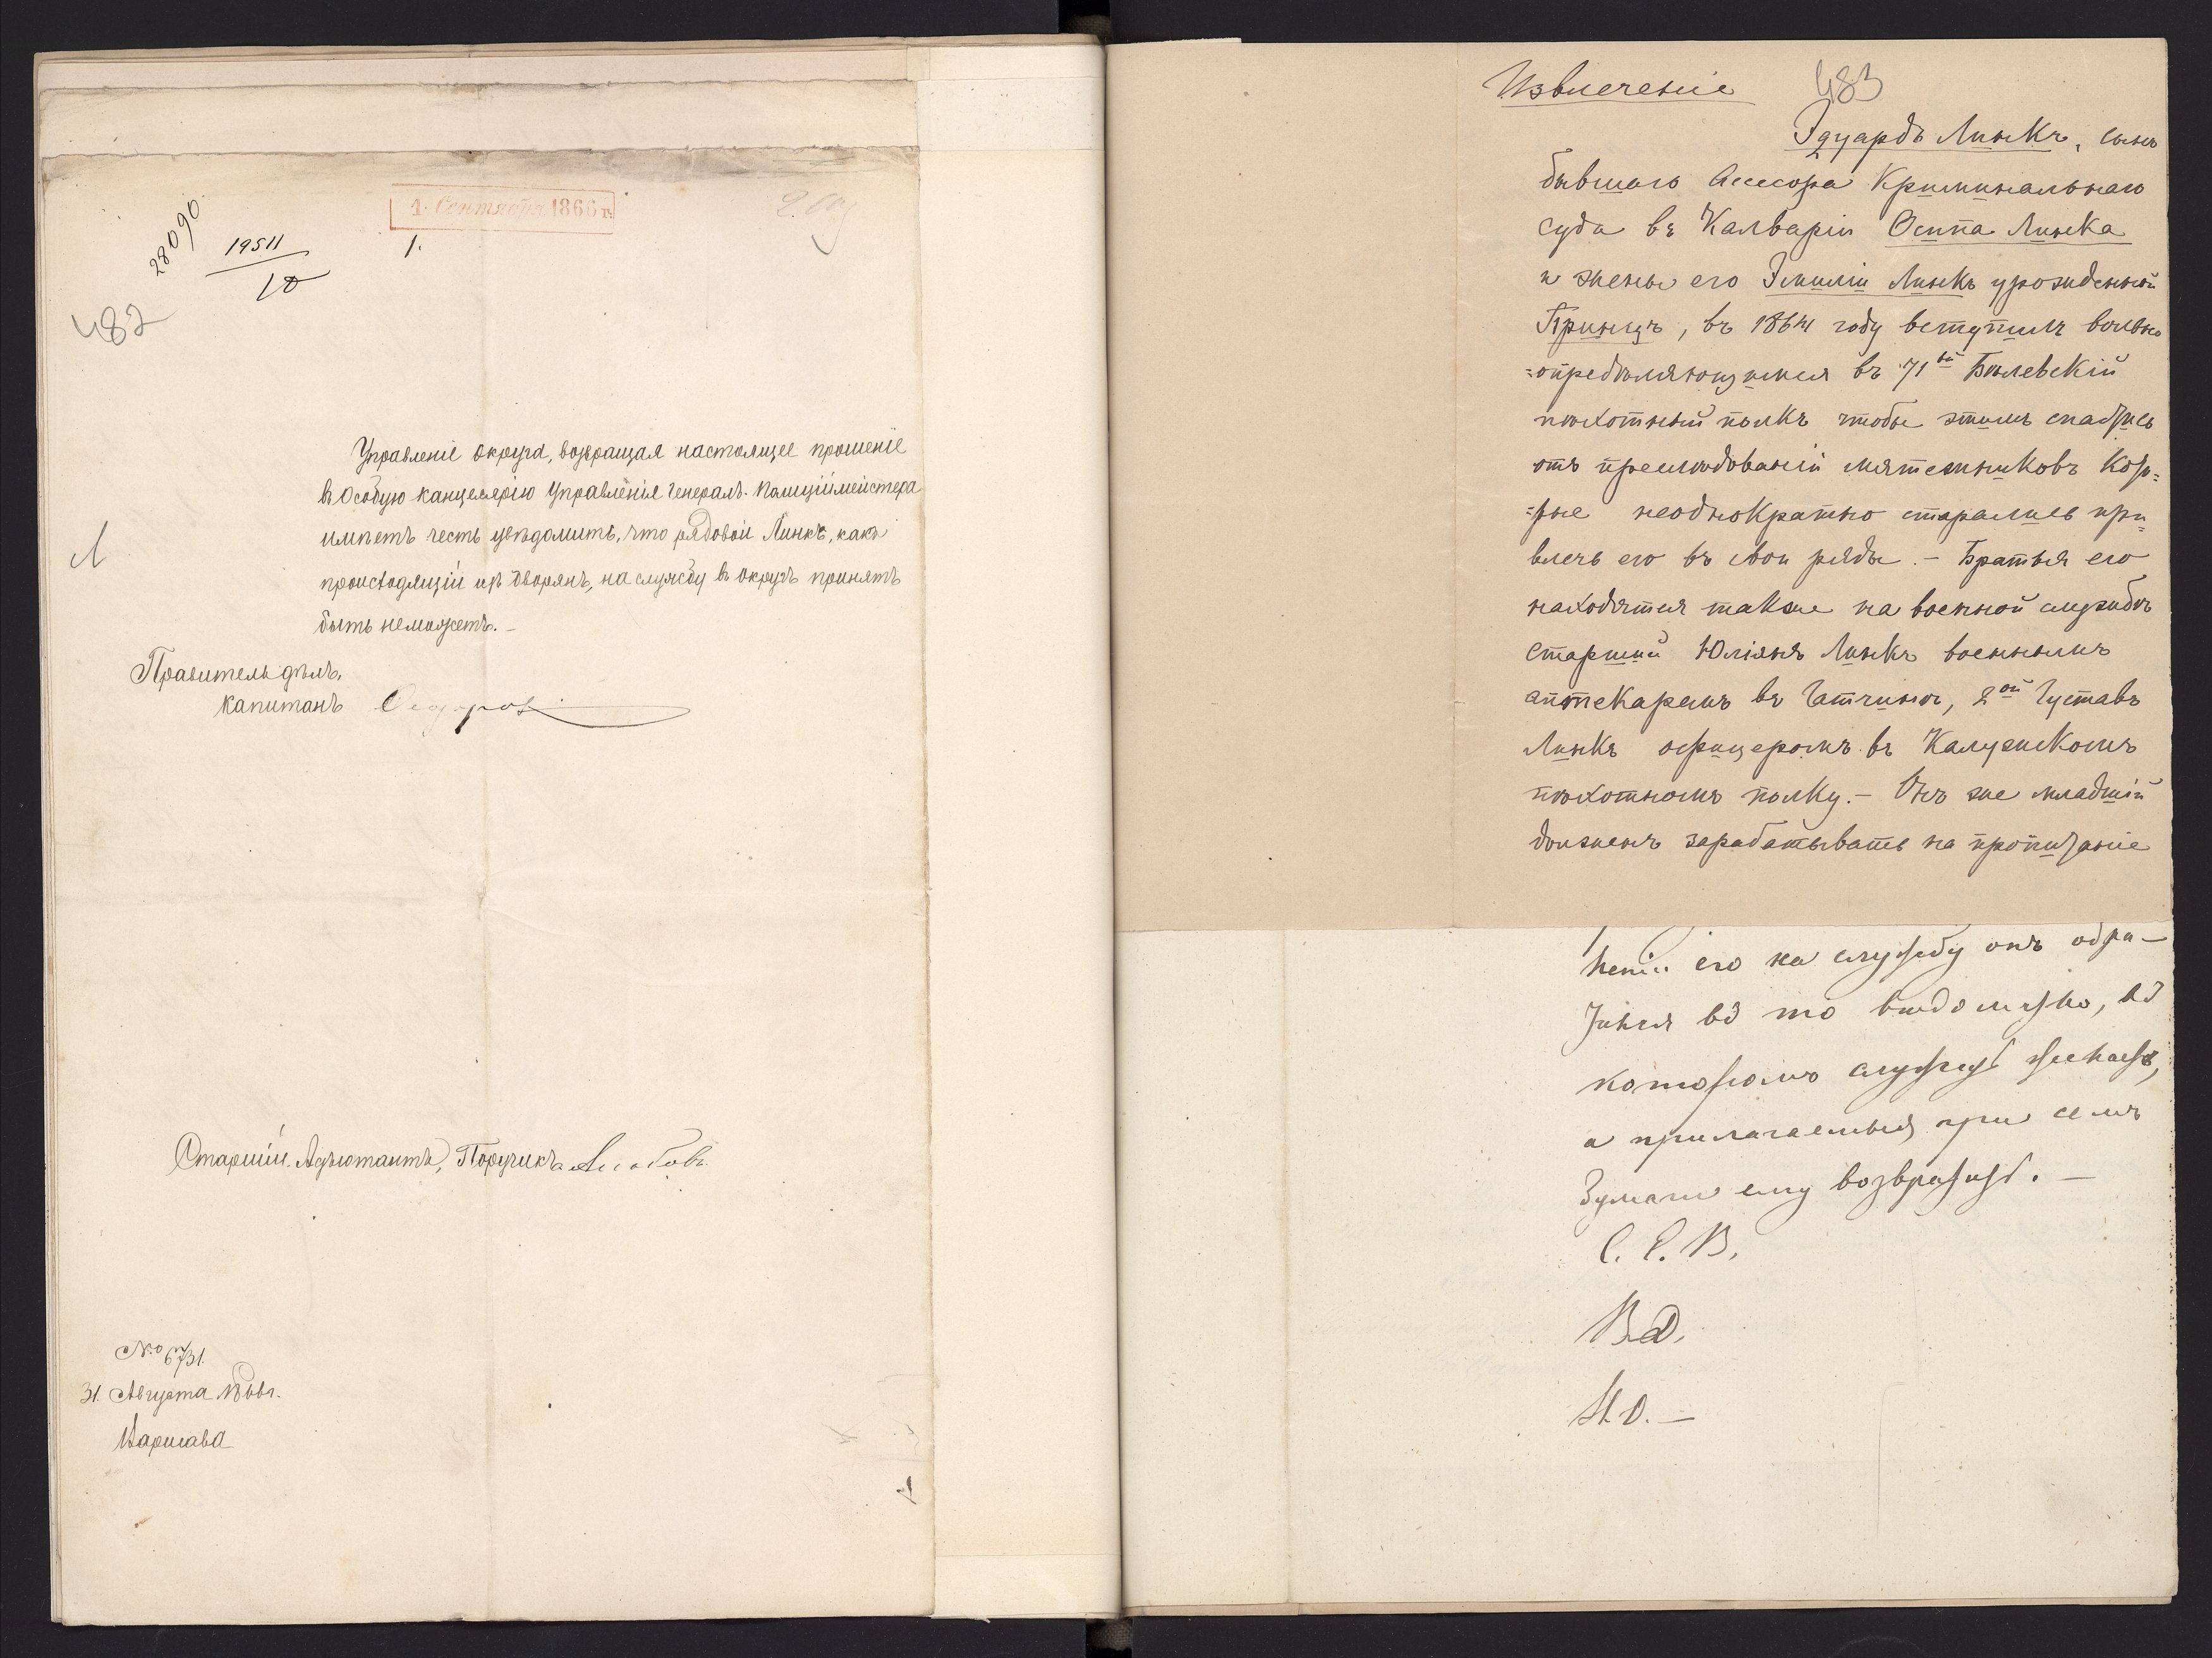 28090
19511
10
1 Сентября 1866 г.
1.
482
Управленіе округа, возвращая настоящее прошеніе
въ Особую канцелярію Управленія Генералъ-Полиціймейстера
имѣетъ честь увѣдомить, что рядовой Линкъ, какъ
происходящій изъ дворянъ, на службу въ округъ принятъ
быть неможетъ.—
Правитель дѣлъ,
капитанъ
Старшій Адъютантъ, Поручикъ
№ 6731.
31 Августа 1866 г.
Варшава
Извлеченіе
483
Эдуардъ Линкъ, сынъ
бывшаго Асесора Криминальнаго
суда въ Калваріи Осипа Линка
и жены его Эмиліи Линкъ урожденной
Принцъ, въ 1864 году вступилъ вольно
=опредѣляющимся въ 71ый Бѣлевскій
пѣхотный полкъ чтобы этимъ спастись
отъ преслѣдованій мятежниковъ кото=
=рые неоднократно старались при=
влечь его въ свои ряды.— Братья его
находятся также на военной службѣ
старшій Юліянъ Линкъ военнымъ
аптекаремъ въ Гатчинѣ, 2ой Густавъ
Линкъ офицеромъ въ Калужскомъ
пѣхотномъ полку.— Онъ же младшій
долженъ зарабатывать на пропитаніе
его на службу онъ обра—
тился въ то вѣдомство, въ
которомъ служить желаетъ,
а прилагаемыя при семъ
бумаги ему возвратить.—
С. Е. В.
В. Д.
Н. О.—